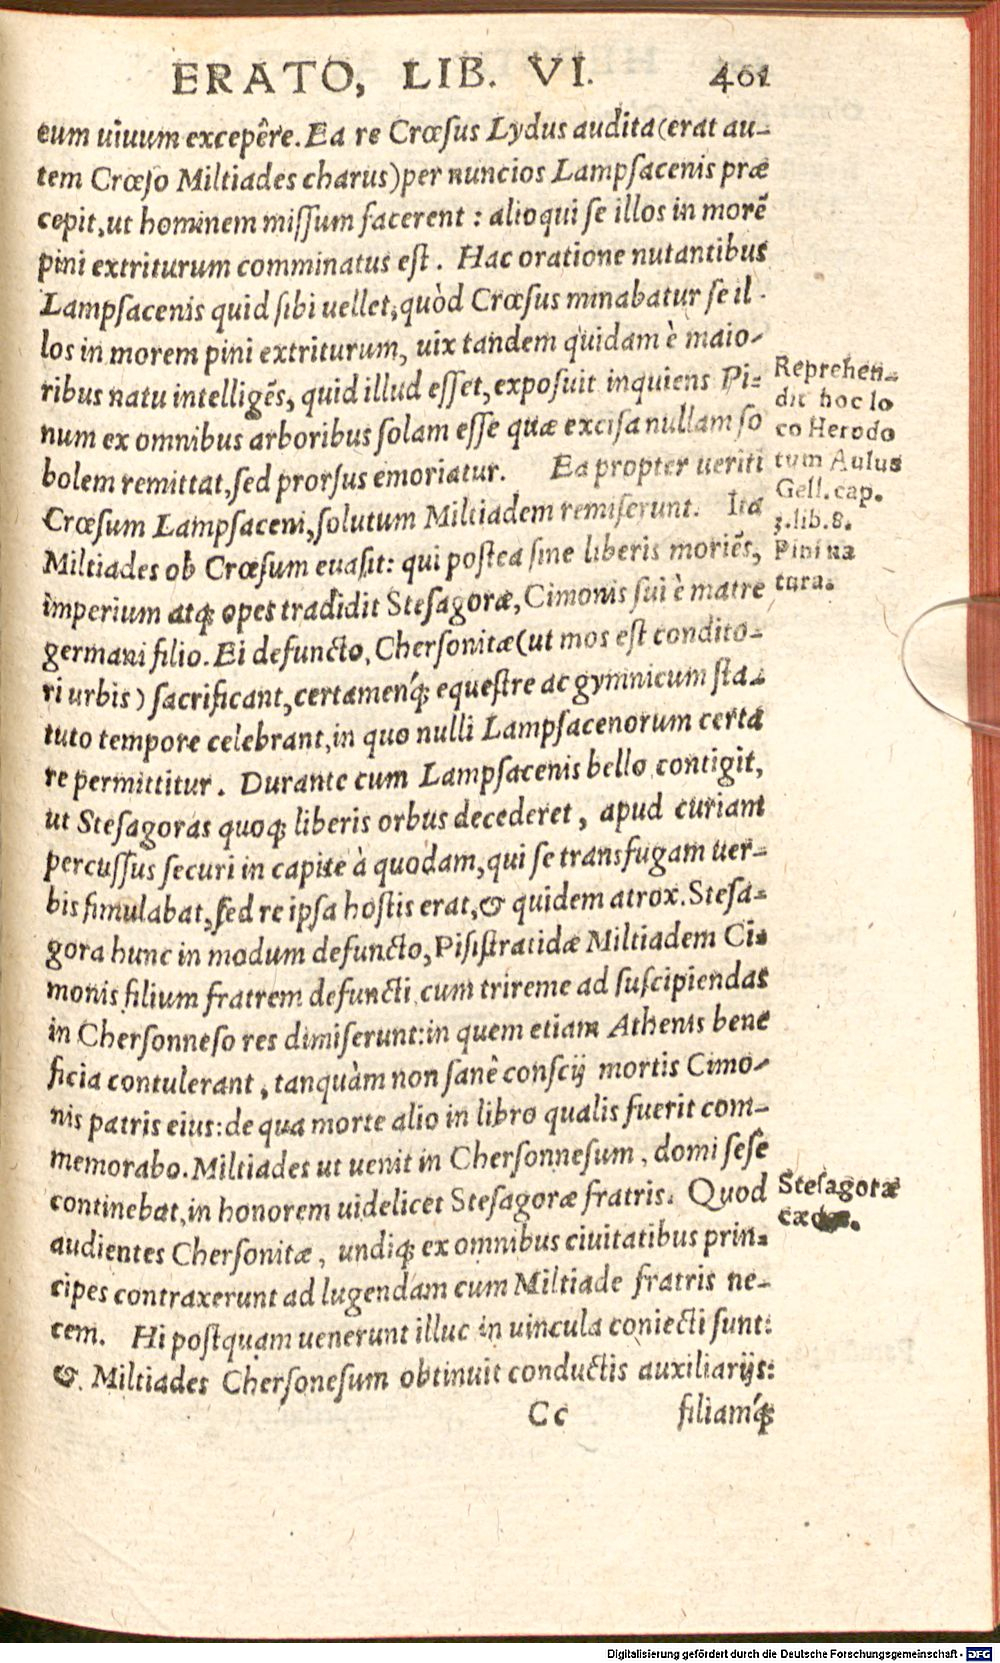 ERATO, LIB. VI. 401
eum uiuum excepêre. Ea re Crœsus Lydus audita (erat au-
tem Crœso Miltiades charus) per nuncios Lampsacenis præ
cepit, ut hominem missum facerent : alioqui se illos in morẽ
pini extriturum comminatus est. Hac oratione nutantibus
Lampsacenis quid sibi uellet, quòd Crœsus minabatur se il-
los in morem pini extriturum, uix tandem quidam è maio-
ribus natu intelligẽs, quid illud esset, exposuit inquiens Pi-
num ex omnibus arboribus solam esse quæ excisa nullam so
bolem remittat, sed prorsus emoriatur. Ea propter ueriti
Crœsum Lampsaceni, solutum Miltiadem remiserunt. Ita
Miltiades ob Crœsum euasit: qui postea sine liberis moriẽs,
imperium atq; opes tradidit Stesagoræ, Cimonis sui è matre
germani filio. Ei defuncto, Chersonitæ (ut mos est condito-
ri urbis) sacrificant, certamenq́; equestre ac gymnicum sta-
tuto tempore celebrant, in quo nulli Lampsacenorum certa
re permittitur. Durante cum Lampsacenis bello contigit,
ut Stesagoras quoq; liberis orbus decederet, apud curiam
percussus securi in capite à quodam, qui se transfugam uer-
bis simulabat, sed re ipsa hostis erat, & quidem atrox. Stesa-
gora hunc in modum defuncto, Pisistratidæ Miltiadem Ci-
monis filium fratrem defuncti cum trireme ad suscipiendas
in Chersonneso res dimiserunt: in quem etiam Athenis bene
ficia contulerant, tanquàm non sanè conscij mortis Cimo-
nis patris eius: de qua morte alio in libro qualis fuerit com-
memorabo. Miltiades ut uenit in Chersonnesum, domi sesê
continebat, in honorem uidelicet Stesagoræ fratris. Quod
audientes Chersonitæ, undiq; ex omnibus ciuitatibus prin-
cipes contraxerunt ad lugendam cum Miltiade fratris ne-
cem. Hi postquam uenerunt illuc in uincula coniecti sunt:
&. Miltiades Chersonesum obtinuit conductis auxiliarijs:
Cc filiamq́;
Reprehen-
dit hoc lo
co Herodo
tum Aulus
Gell. cap.
3. lib. 8.
Pini na
tura.
Stesagoræ
Digitalisierung gefördert durch die Deutsche Forschungsgemeinschaft - DFG